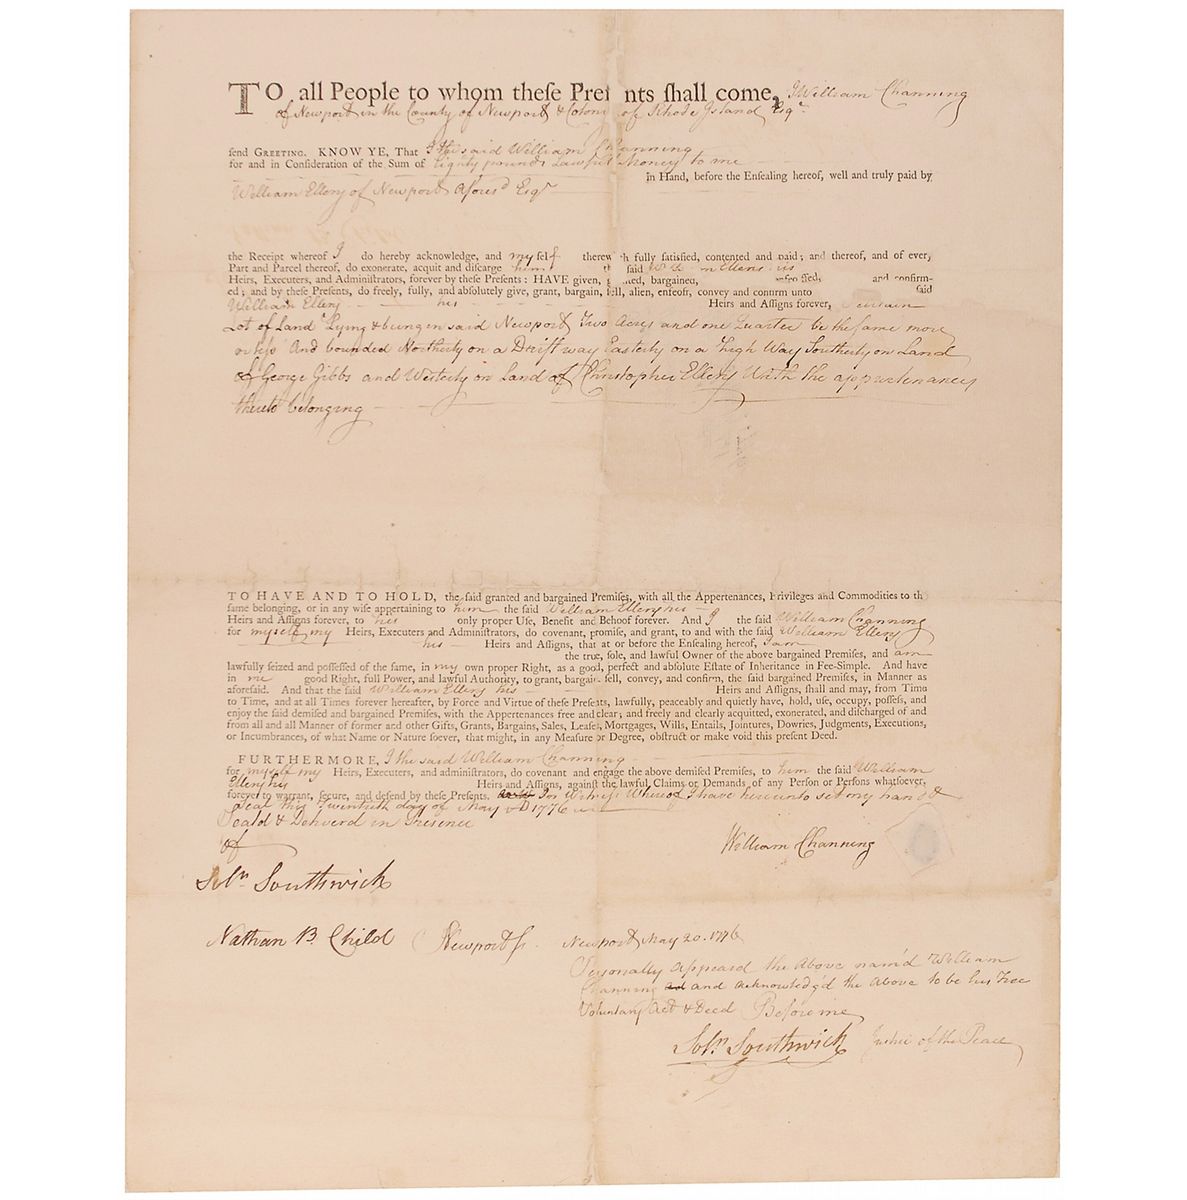 TO all People to whom theſe Preſ nts ſhall come, I William Channing
of Newport in the County of Newport & Colony of Rhode Island Esqr
ſend GREETING. KNOW YE, That I the said William Channing
for and in Conſideration of the Sum of Eighty pounds Lawful Money to me
in Hand, before the Enſealing hereof, well and truly paid by
William Ellery of Newport Aforesd Esqr
the Receipt whereof I do hereby acknowledge, and myself therew th fully ſatisfied, contented and paid; and thereof, and of every
Part and Parcel thereof, do exonerate, acquit and diſcarge him ſaid Ellery his
Heirs, Executors, and Adminiſtrators, forever by theſe Preſents: HAVE given, g nted, bargained, and confirm-
ed; and by theſe Preſents, do freely, fully, and abſolutely give, grant, bargain, ſell, alien, enfeoff, convey and confirm unto ſaid
William Ellery his Heirs and Aſſigns forever, a certain
Lot of Land Lying & being in said Newport Two Acres and one Quarter be the same more
or less And bounded Northerly on a Drift way Easterly on a High Way Southerly on Land
of George Gibbs and Westerly on Land of Christopher Ellery With the appurtenances
thereto belonging
TO HAVE AND TO HOLD, the ſaid granted and bargained Premiſes, with all the Appertenances, Privileges and Commodities to th
ſame belonging, or in any wiſe appertaining to him the ſaid William Ellery his
Heirs and Aſſigns forever, to his only proper Uſe, Benefit and Behoof forever. And I the ſaid William Channing
for myself my Heirs, Executors and Adminiſtrators, do covenant, promiſe, and grant, to and with the ſaid William Ellery
his Heirs and Aſſigns, that at or before the Enſealing hereof, I am
the true, ſole, and lawful Owner of the above bargained Premiſes, and am
lawfully ſeized and poſſeſſed of the ſame, in my own proper Right, as a good, perfect and abſolute Eſtate of Inheritance in Fee-Simple. And have
in me good Right, full Power, and lawful Authority, to grant, bargain ſell, convey, and confirm, the ſaid bargained Premiſes, in Manner as
aforeſaid. And that the ſaid William Ellery his Heirs and Aſſigns, ſhall and may, from Time
to Time, and at all Times forever hereafter, by Force and Virtue of theſe Preſents, lawfully, peaceably and quietly have, hold, uſe, occupy, poſſeſs, and
enjoy the ſaid demiſed and bargained Premiſes, with the Appertenances free and clear; and freely and clearly acquitted, exonerated, and diſcharged of and
from all and all Manner of former and other Gifts, Grants, Bargains, Sales, Leaſes, Mortgages, Wills, Entails, Jointures, Dowries, Judgments, Executions,
or Incumbrances, of what Name or Nature ſoever, that might, in any Meaſure or Degree, obſtruct or make void this preſent Deed.
FURTHERMORE, I the said William Channing
for myself my Heirs, Executors, and adminiſtrators, do covenant and engage the above demiſed Premiſes, to him the ſaid William
Ellery his Heirs and Aſſigns, againſt the lawful Claims or Demands of any Perſon or Perſons whatſoever,
forever to warrant, ſecure, and defend by theſe Preſents. In Witness Whereof I have hereunto set my hand &
Seal this Twentieth day of May AD 1776
Seal'd & Deliverd in Presence
of
William Channing
Soln Southwick
Nathan B. Child
Newport ss. Newport May 20. 1776
Personally appeard the Above nam'd William
Channing and acknowledg'd the Above to be his Free
Voluntary Act & Deed Before me
Soln Southwick Justice of the Peace